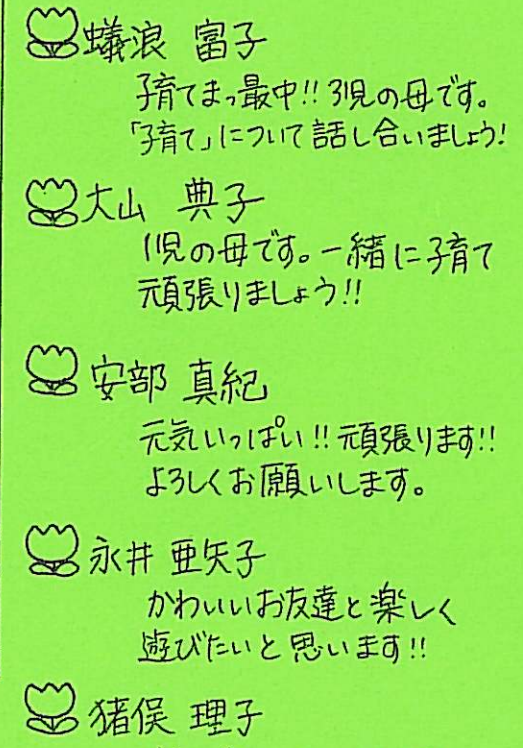 蟻浪 富子
子育てまっ最中!! 3児の母です。
「子育て」について話し合いましょう!
大山 典子
1児の母です。一緒に子育て
頑張りましょう!!
安部 真紀
元気いっぱい!! 頑張ります!!
よろしくお願いします。
永井 亜矢子
かわいいお友達と楽しく
遊びたいと思います!!
猪俣 理子